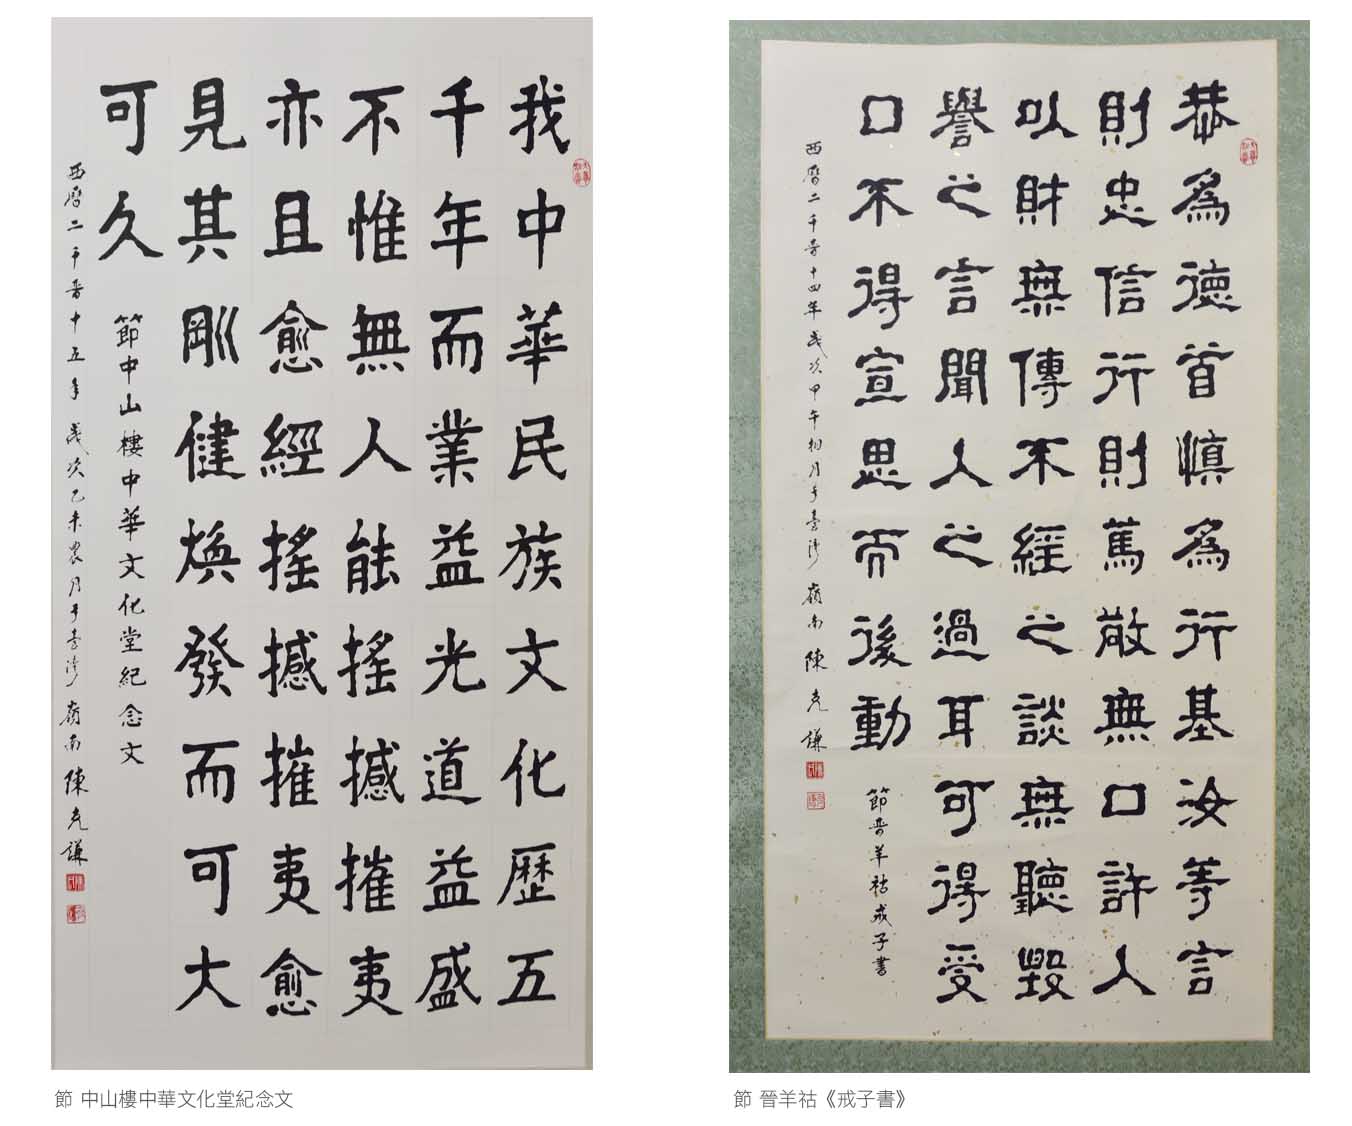 我中華民族文化歷五
千年而業益光道益盛
不惟無人能搖撼摧夷
亦且愈經搖撼摧夷愈
見其剛健煥發而可大
可久
節中山樓中華文化堂紀念文
西曆二千零十五年歲次乙未農月于臺灣 嶺南 陳克謙
節 中山樓中華文化堂紀念文
恭為德首慎為行基汝等言
則忠信行則篤敬無口許人
以財無傳不經之談無聽毀
譽之言聞人之過耳可得受
口不得宣思而後動
節晉羊祜戒子書
西曆二千零十四年歲次甲午月于臺灣 嶺南 陳克謙
節 晉羊祜《戒子書》